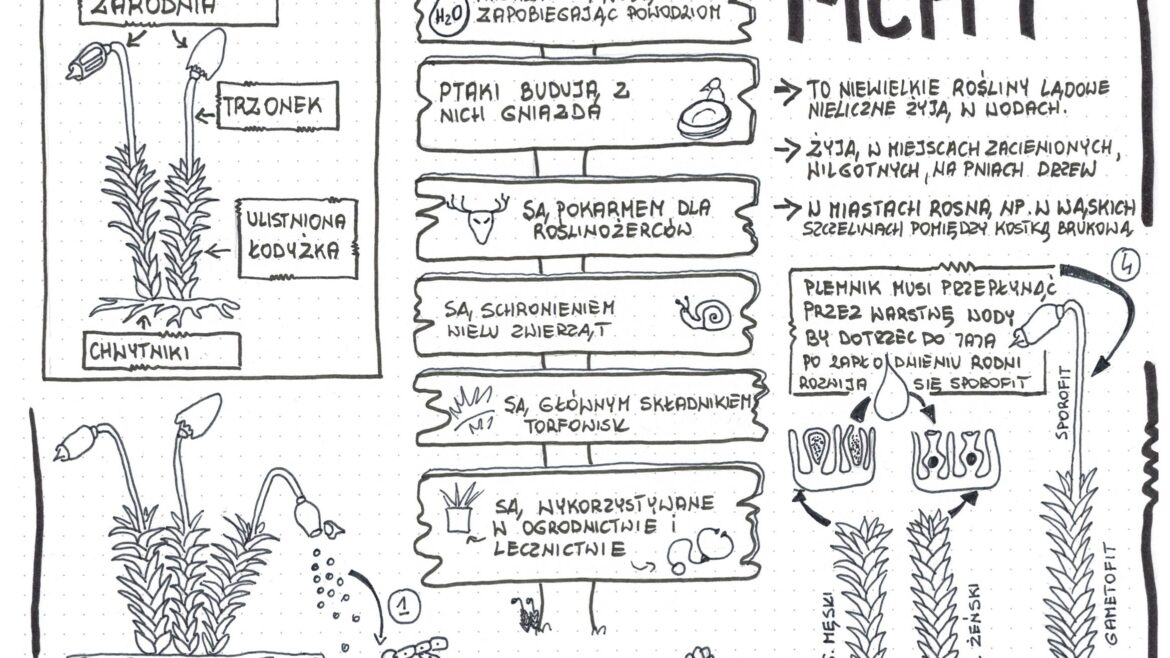 ZARODNIA
TRZONEK
ULISTNIONA
ŁODYŻKA
CHWYTNIKI
H2O
ZAPOBIEGAJĄC POWODZIOM
PTAKI BUDUJĄ Z
NICH GNIAZDA
SĄ POKARMEM DLA
ROŚLINOŻERCÓW
SĄ SCHRONIENIEM
WIELU ZWIERZĄT
SĄ GŁÓWNYM SKŁADNIKIEM
TORFOWISK
SĄ WYKORZYSTYWANE
W OGRODNICTWIE I
LECZNICTWIE
MCHY
→ TO NIEWIELKIE ROŚLINY LĄDOWE
NIELICZNE ŻYJĄ W WODACH.
→ ŻYJĄ W MIEJSCACH ZACIENIONYCH,
WILGOTNYCH, NA PNIACH DRZEW
→ W MIASTACH ROSNĄ NP. W WĄSKICH
SZCZELINACH POMIĘDZY KOSTKĄ BRUKOWĄ
4
PLEMNIK MUSI PRZEPŁYNĄĆ
PRZEZ WARSTWĘ WODY
BY DOTRZEĆ DO JAJA
PO ZAPŁODNIENIU RODNI
ROZWIJA SIĘ SPOROFIT
SPOROFIT
GAMETOFIT
G. MĘSKI
ŻEŃSKI
1